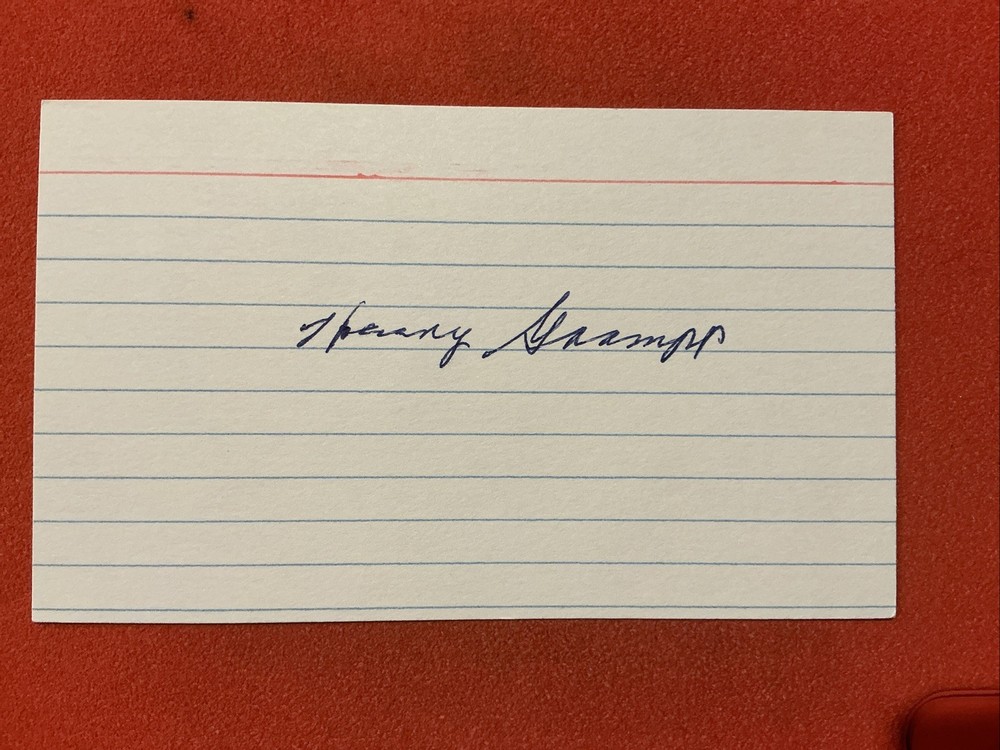 Henry Grampp